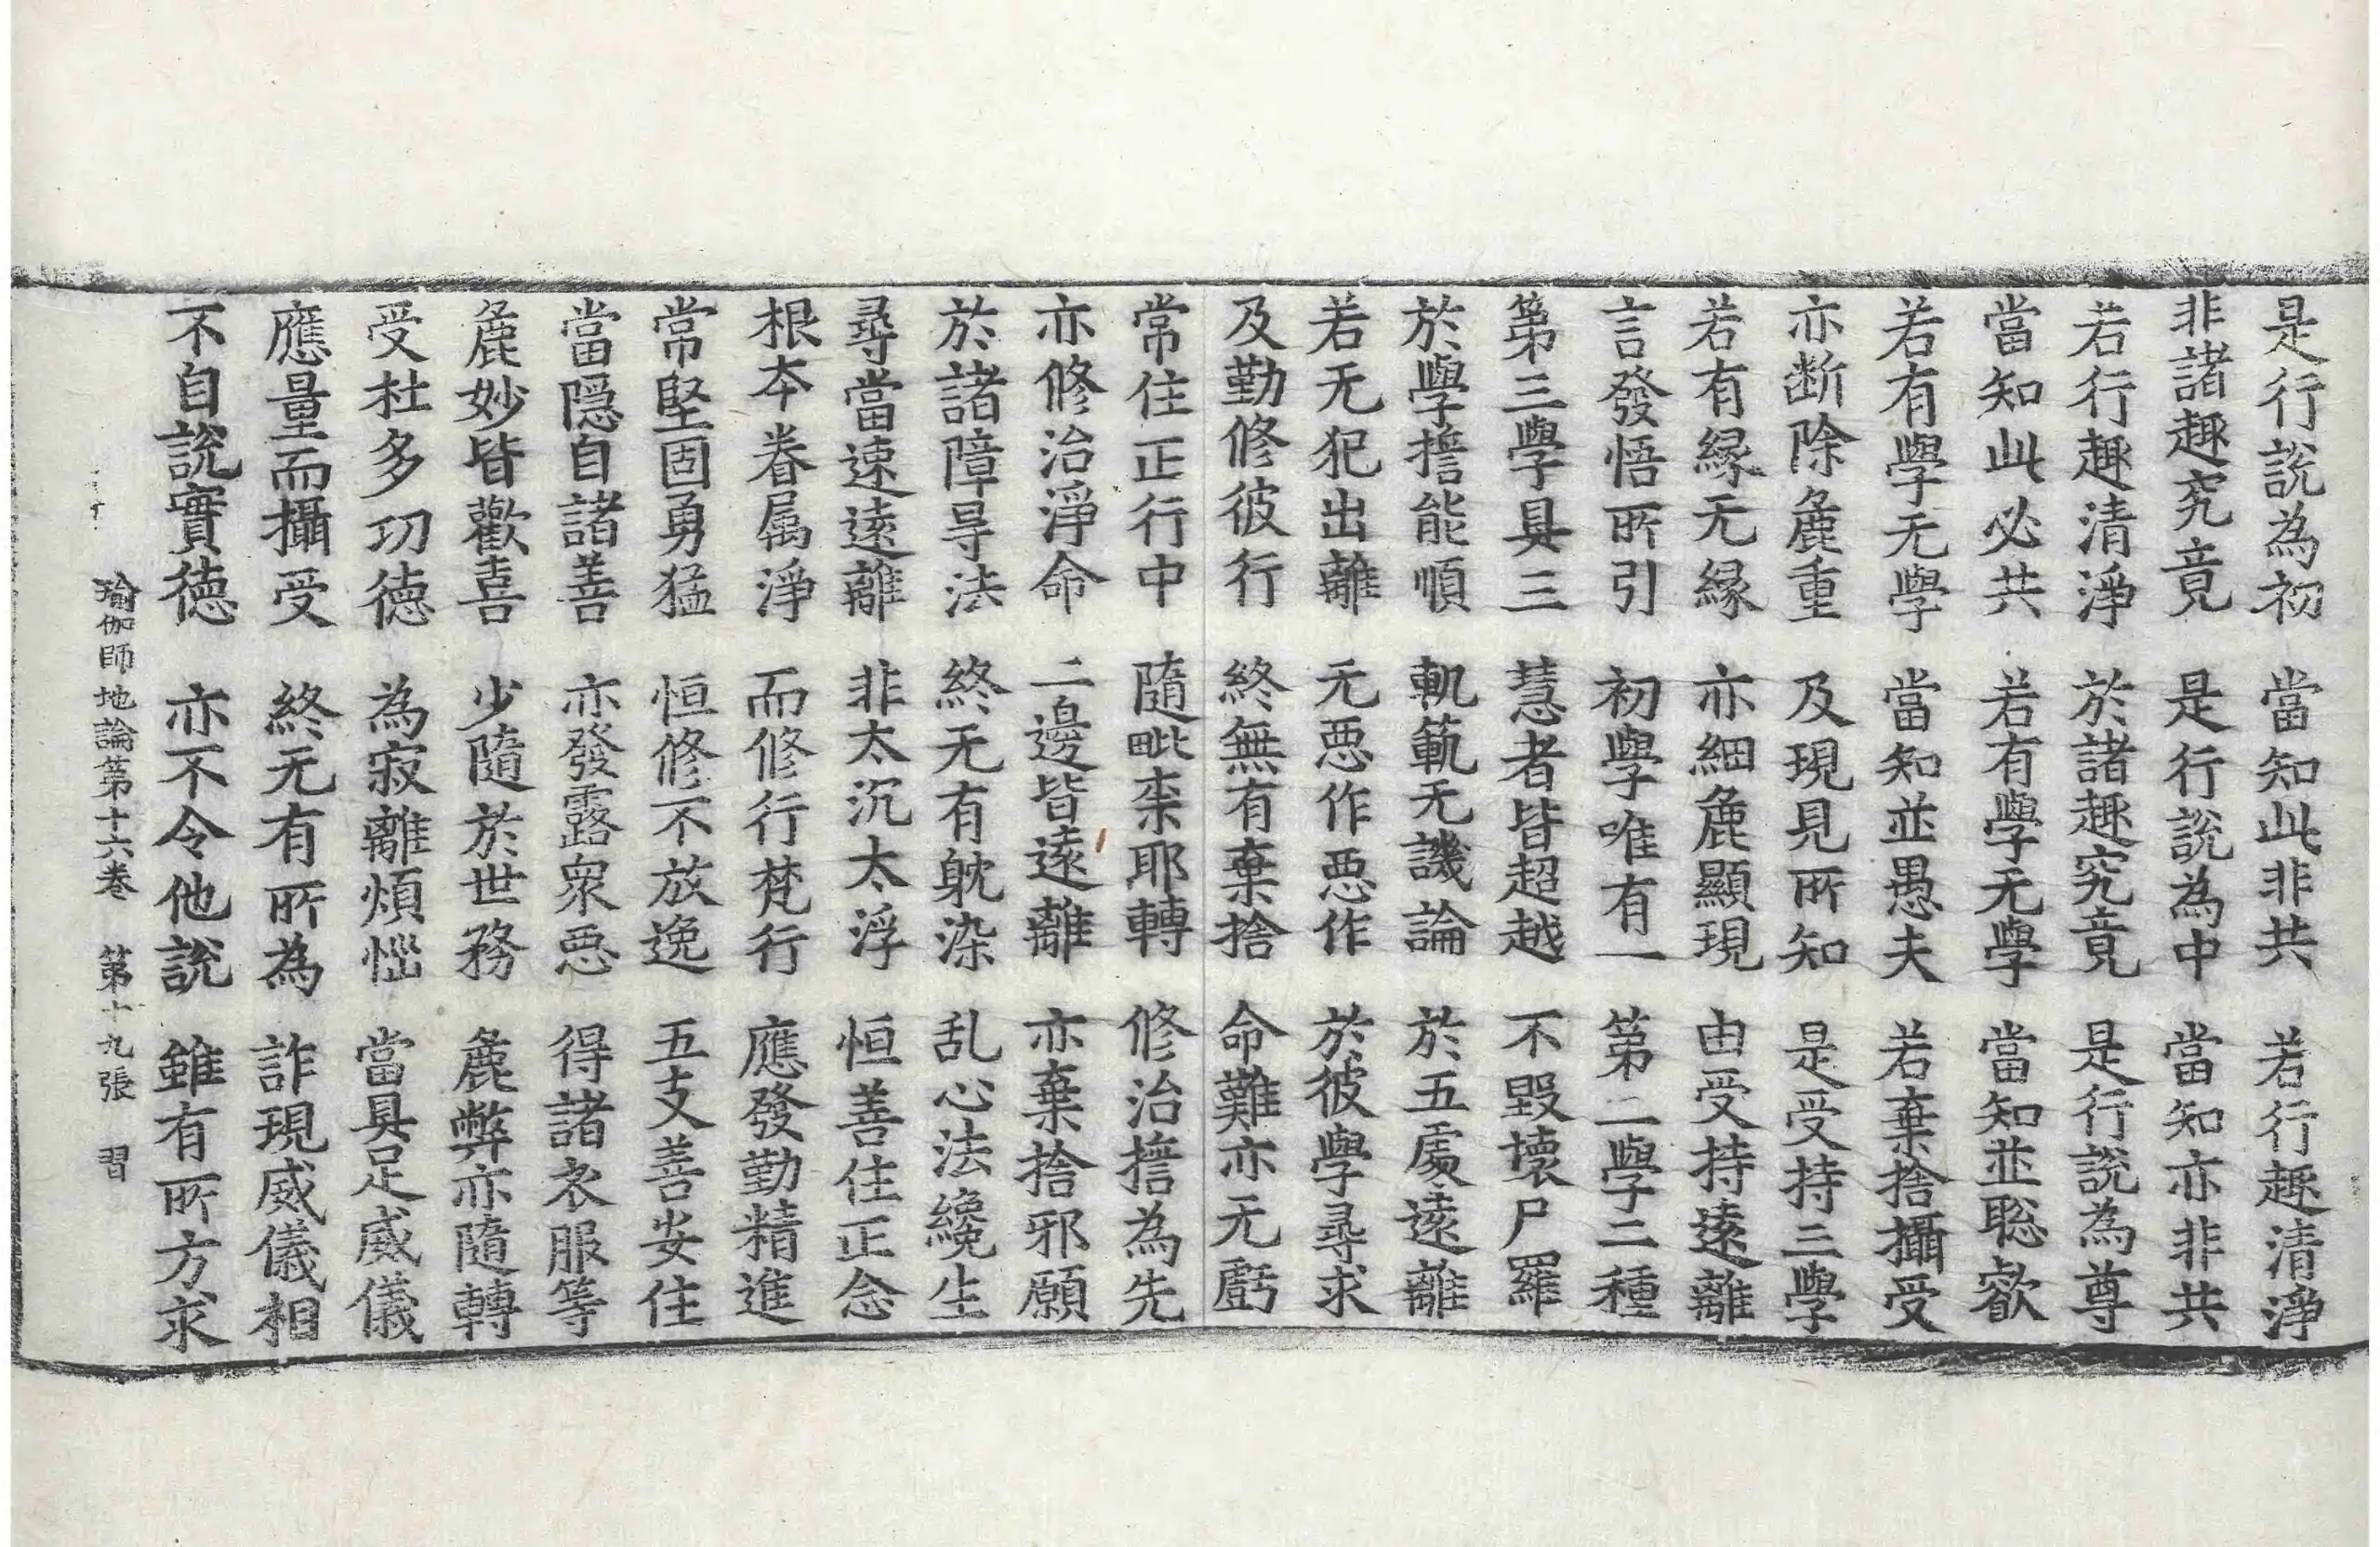 是行說為初　當知此非共　若行趣清淨
非諸趣究竟　是行說為中　當知亦非共
若行趣清淨　於諸趣究竟　是行說為尊
當知此必共　若有學无學　當知並聡叡
若有學无學　當知並愚夫　若棄捨攝受
亦断除麁重　及現見所知　是受持三學
若有縁无縁　亦細麁顯現　由受持遠離
言發悟所引　初學唯有一　第二學二種
第三學具三　慧者皆超越　不毀壞尸羅
於學擔能順　軌範无譏論　於五處遠離
若无犯出離　无惡作惡作　於彼學尋求
及勤修彼行　終無有棄捨　命難亦无虧
常住正行中　隨毗柰耶轉　修治擔為先
亦修治淨命　二邊皆遠離　亦棄捨邪願
於諸障㝵法　終无有躭染　乱心法纔生
尋當速遠離　非太沉太浮　恒善住正念
根本眷属淨　而修行梵行　應發勤精進
常堅固勇猛　恒修不放逸　五支善安住
當隱自諸善　亦發露眾惡　得諸衣服等
麁妙皆歡喜　少隨於世務　麁弊亦隨轉
受杜多功德　為寂離煩惱　當具足威儀
應量而攝受　終无有所為　詐現威儀相
不自說實德　亦不令他說　雖有所方求
瑜伽師地論第十六卷　第十九張　習